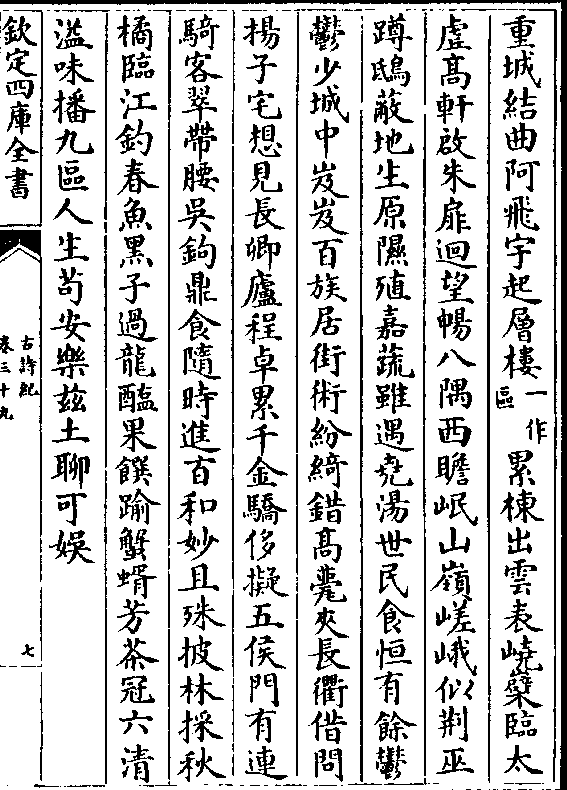 重城結曲阿飛宇起層樓一作區累棟出雲表嶢櫱臨太
虛高軒啟朱扉迴望暢八隅西瞻岷山嶺嵯峨似荊巫
蹲鴟蔽地生原隰殖嘉蔬雖遇堯湯世民食恒有餘鬱
鬱少城中岌岌百族居街術紛綺錯高甍夾長衢借問
揚子宅想見長卿廬程卓累千金驕侈擬五侯門有連
騎客翠帶腰吳鉤鼎食隨時進百和妙且殊披林採秋
橘臨江釣春魚黑子過龍醢果饌踰蟹蝑芳茶冠六清
溢味播九區人生苟安樂兹土聊可娛
欽定四庫全書
古詩紀
卷三十九
七